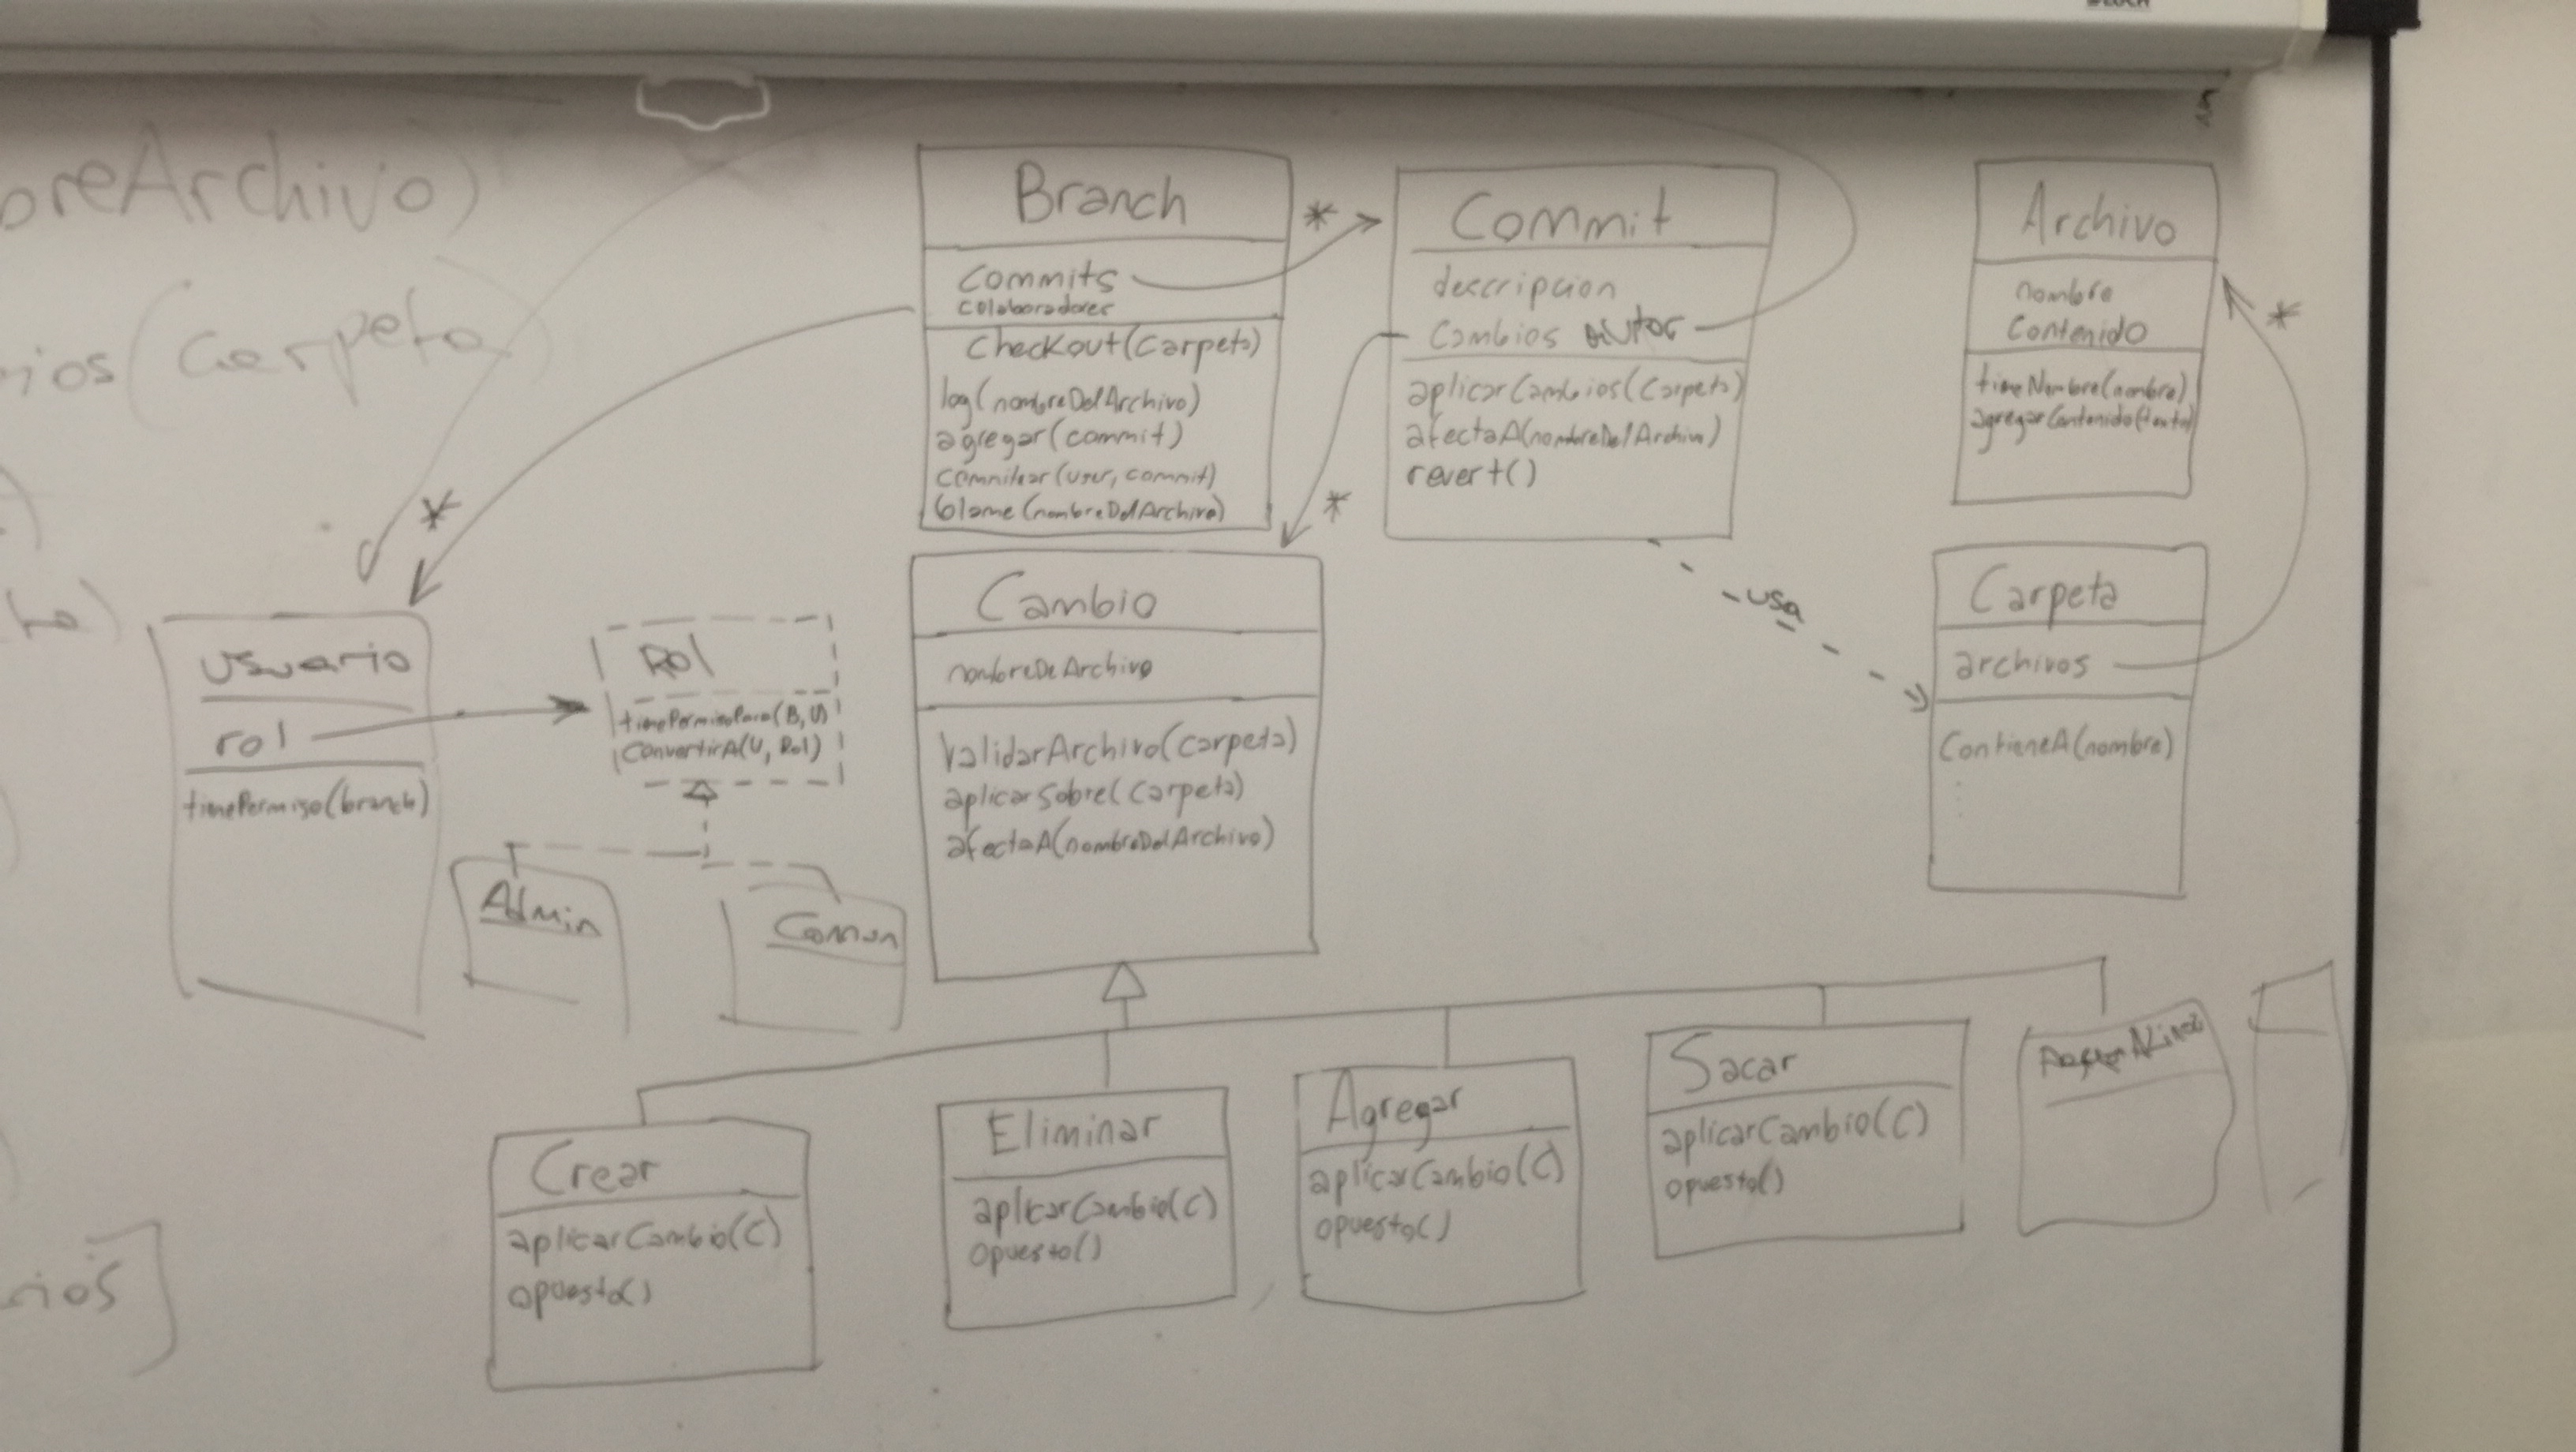 breArchivo)
rios(Carpeta
Branch
Commits
colaboradores
Checkout(Carpeta)
log(nombreDelArchivo)
agregar(commit)
commitear(user, commit)
blame(nombreDelArchivo)
*
Commit
descripcion
Cambios autor
aplicarCambios(Carpeta)
afectaA(nombreDelArchivo)
revert()
Archivo
nombre
Contenido
tieneNombre(nombre)
agregarContenido(texto)
*
*
*
usa
Usuario
rol
tienePermiso(branch)
Rol
tienePermisoPara(B, U)
ConvertirA(U, Rol)
Admin
Comun
Cambio
nombreDeArchivo
ValidarArchivo(Carpeta)
aplicarSobre(Carpeta)
afectaA(nombreDelArchivo)
Carpeta
archivos
ContieneA(nombre)
Crear
aplicarCambio(C)
opuesto()
Eliminar
aplicarCambio(C)
opuesto()
Agregar
aplicarCambio(C)
opuesto()
Sacar
aplicarCambio(C)
opuesto()
rios]